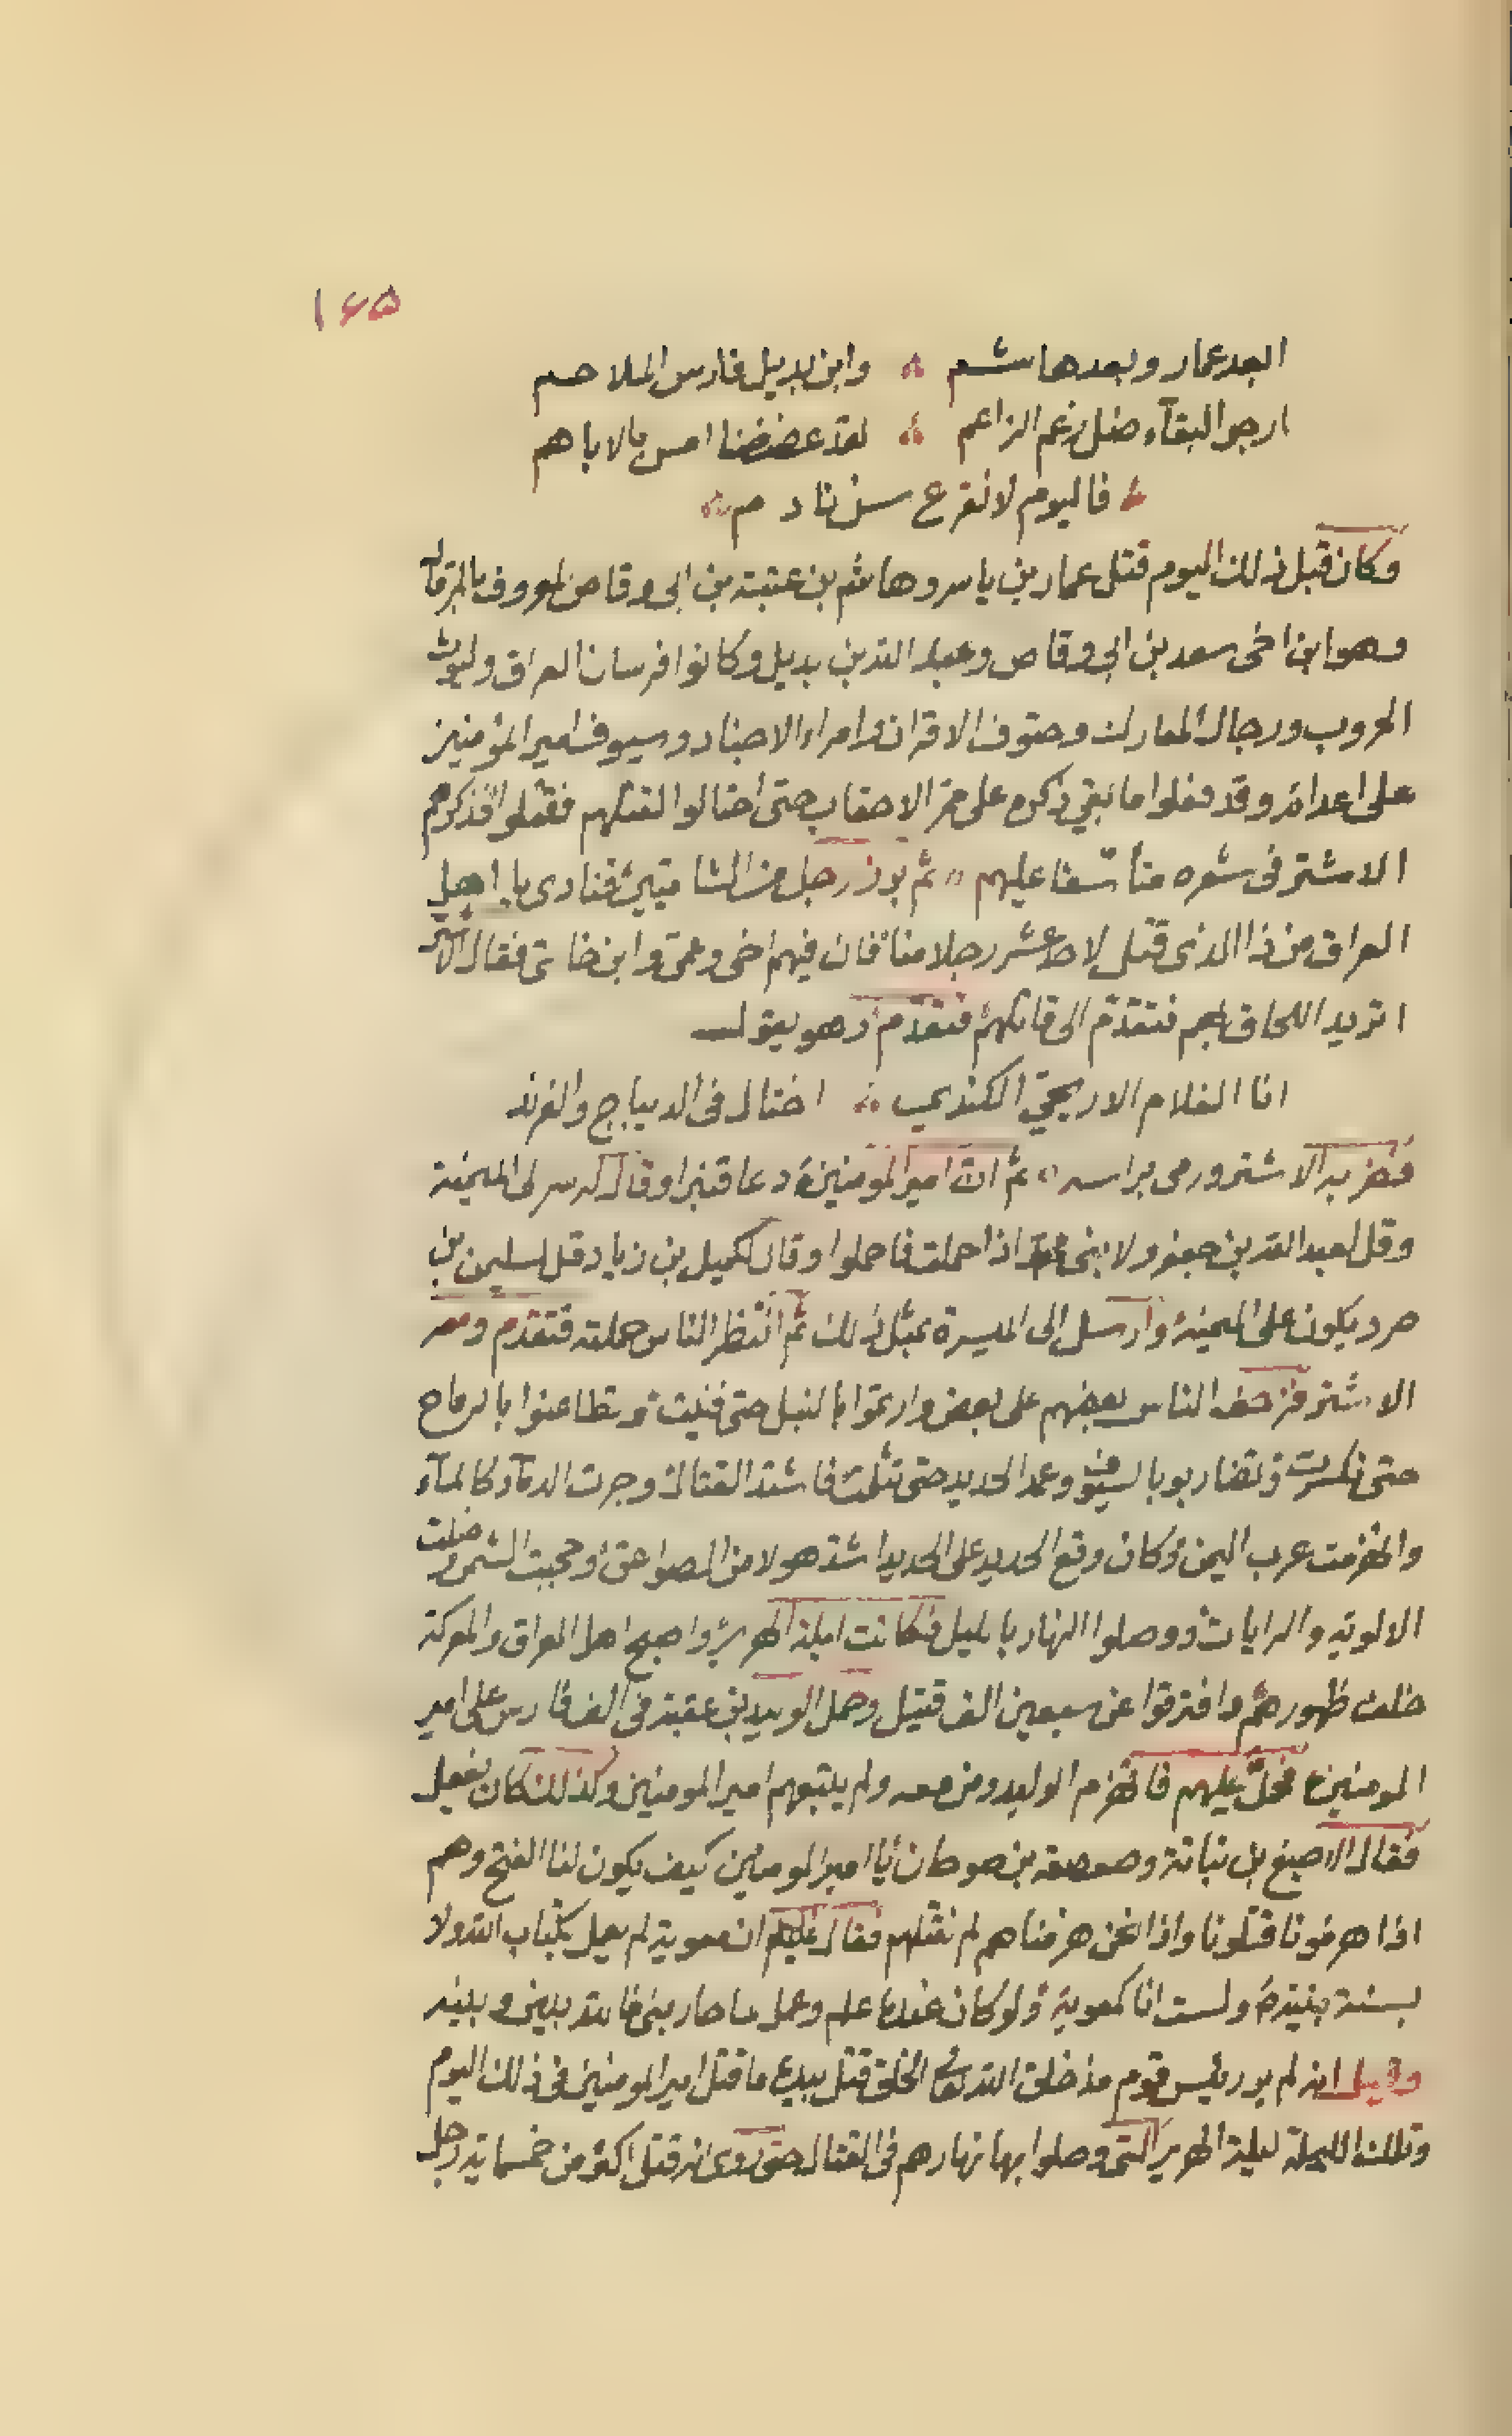 ١٦٥
ابعد عمار وبعد هاشم ۞ وابن بديل فارس الملاحم
ارجو البقآء ضل زعم الزاعم ۞ لقد عضضنا امس بالاباهم
فاليوم لا نقرع سن نادم
وكان قبل ذلك اليوم قتل عمار بن ياسر وهاشم بن عتبة بن ابى وقاص المعروف بالمرقال
وهو ابن اخى سعد بن ابى وقاص وعبد الله بن بديل وكانوا فرسان العراق وليوث
الحروب ورجال المعارك وحتوف الاقران وامراء الاجناد وسيوف امير المؤمنين
على اعدائه وقد فعلوا ما بقى ذكره على مر الاحقاب حتى احتالوا لقتلهم فقتلوا فذكرهم
الاشتر فى شعره متأسفا عليهم ثم برز رجل من الشاميين فنادى يا اهل
العراق من ذا الذى قتل لاحد عشر رجلا منا فان فيهم اخى وعمى وابن خالتى فقال الاشتر
اتريد اللحاق بهم فتقدم الى قاتلهم فتقدم وهو يقول
انا الغلام الاريحى الكندى اختال فى الديباج والفرند
فضربه الاشتر ورمى براسه ثم ان امير المؤمنين ع دعا قنبرا وقال له سر الى الميمنة
وقل لعبد الله بن جعفر ولابنى محمد اذا حملت فاحملوا وقال لكميل بن زياد قل لسليمن بن
صرد يكون على الميمنة وارسل الى الميسرة بمثل ذلك ثم انتظر الناس حملته فتقدم ومعه
الاشتر فزحف الناس بعضهم على بعض وارتموا بالنبل حتى فنيت وتطاعنوا بالرماح
حتى تكسرت وتضاربو بالسيوف وعمد الحديد حتى تثلمت فاشتد القتال وجرت الدمآء كالمآء
وانهزمت عرب اليمن وكان وقع الحديد على الحديد اشد هولا من الصواعق وحجبت الشمس وضلت
الالوية والرايات ووصلوا النهار بالليل فكانت ليلة الهرير واصبح اهل العراق والمعركة
خلف ظهورهم وافترقوا عن سبعين الف قتيل وحمل الوليد بن عقبة فى الف فارس على امير
المومنين ع فحمل عليهم فانهزم الوليد ومن معه ولم يتبعهم امير المومنين وكذلك كان يفعل
فقال الاصبغ بن نباتة وصعصعة بن صوحان يا امير المومنين كيف يكون لنا الفتح وهم
اذا هزمونا قتلونا واذا نحن هزمناهم لم نقتلهم فقال عليه م ان معوية لم يعمل بكتاب الله ولا
بسنة نبيه ولست انا كمعوية ولو كان عنده علم وعمل ما حاربنى فالله بينى وبينه
وقيل انه لم ير رئيس قوم مذ خلق الله تعالى الخلق قتل بيده ما قتل امير المومنين فى ذلك اليوم
وتلك الليلة ليلة الهرير التى وصلوا بها نهارهم فى القتال حتى روى انه قتل اكثر من خمسماية رجل